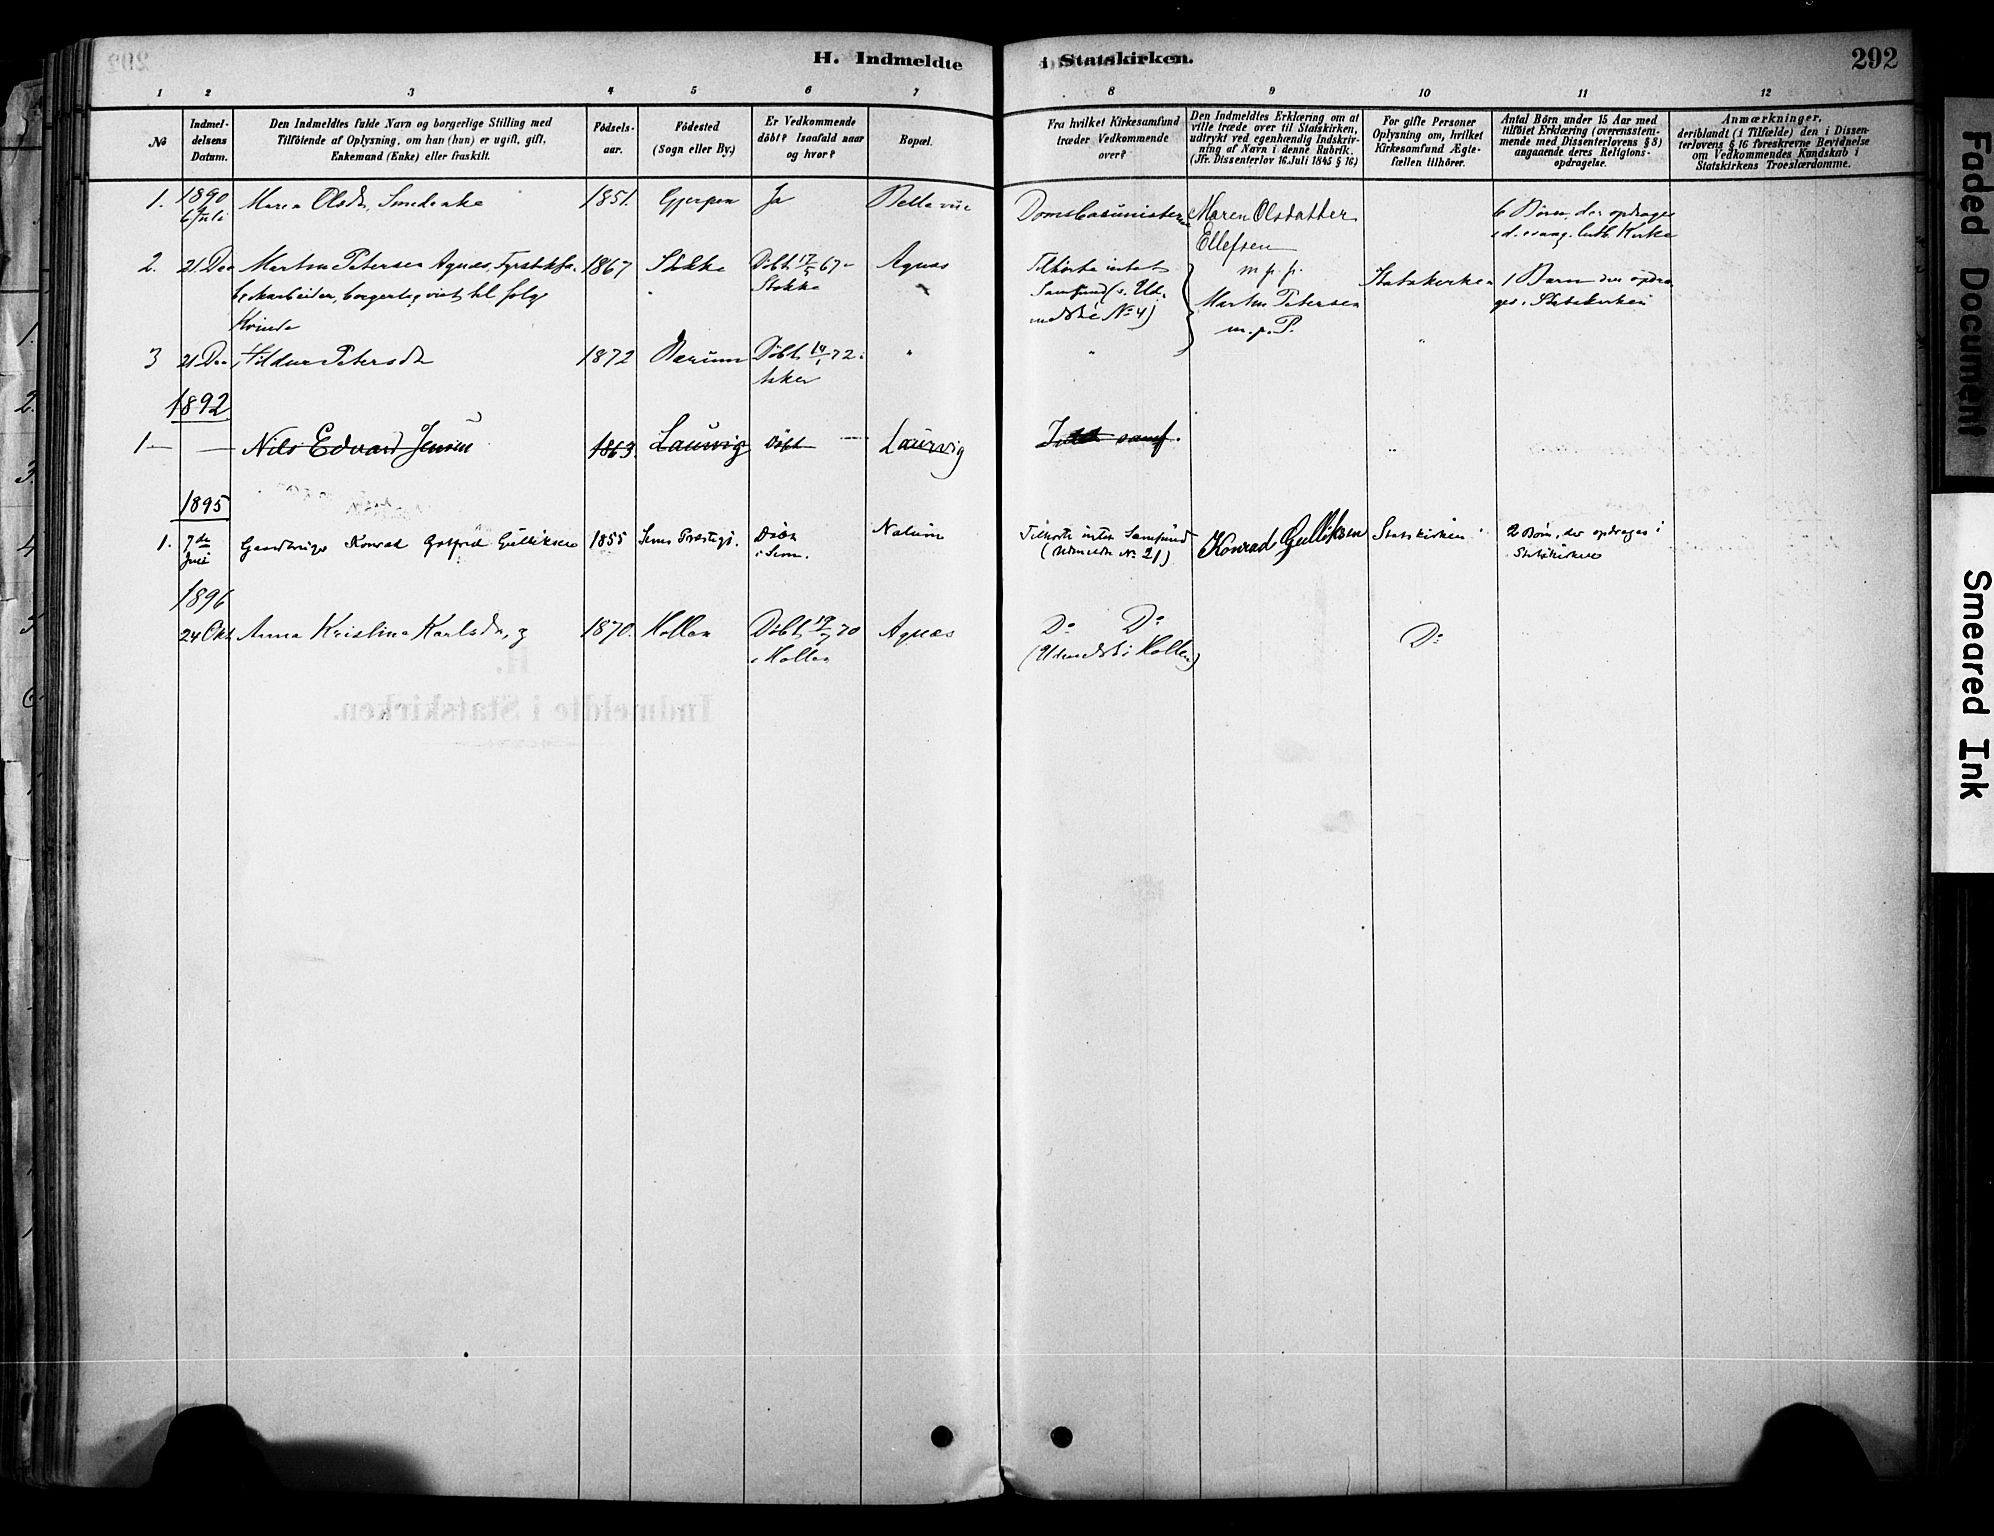 H. Indmeldte
i Statskirken.
292
1 2 3 4 5 6 7 8 9 10 11 12
No
Indmel-
delsens
Datum.
Den Indmeldtes fulde Navn og borgerlige Stilling med
Tilföiende af Oplysning, om han (hun) er ugift, gift,
Enkemand (Enke) eller fraskilt.
Födsels-
aar.
Födested
(Sogn eller By.)
Er Vedkommende
döbt? Isaafald naar
og hvor?
Bopæl.
Fra hvilket Kirkesamfund
træder Vedkommende
over?
Den Indmeldtes Erklæring om at
ville træde over til Statskirken,
udtrykt ved egenhændig Indskriv-
ning af Navn i denne Rubrik.
(Jfr. Dissenterlov 16 Juli 1845 § 16)
For gifte Personer
Oplysning om, hvilket
Kirkesamfund Ægte-
fællen tilhörer.
Antal Börn under 15 Aar med
tilföiet Erklæring (overensstem-
mende med Dissenterlovens § 8)
angaaende deres Religions-
opdragelse.
Anmærkninger,
deriblandt (i Tilfælde) den i Dissen-
terlovens § 16 foreskrevne Bevidnelse
om Vedkommendes Kundskab i
Statskirkens Troeslærdomme.
1. 1890 Maren Olsdr, Smedenke 1851. Gjerpen Ja Bellevue Maren Olsdatter 6 Børn, der opdrages
6 Juli Ellefsen i d. evang. luth. Kirke
m. p. p.
2. 21 Dec Martin Petersen Agnæs, Fyrstikfa- 1867 Stokke Döbt 17/5 67 Agnæs Tilhörte intet Statskirken 1 Barn der opdra-
brikarbeider, borgerlig viet til følg. Stokke Samfund (s. Ud- Martin Petersen ges i Statskirken
Kvinde meldte No 4) m. p. P.
3 21 Dec Hildur Petersdr 1872 Bærum Döbt 14/1 72 "
Asker
1892
1 — Nils Edvard Jensen 1863. Laurvig Döbt — Laurvig samf.
1895
1. 7de Gaardbruger Konrad Gotfred Gulliksen 1855 Sems Præstegj. Döbt Nalum Tilhörte intet Samfund Konrad Gulliksen Statskirken 2 Börn, der opdrages i
Juni i Sem. (Udmeldte No 21) Statskirken
1896
24 Okt Anna Kristine Karlsdr, g 1870. Hollen Döbt 17/7 70 Agnæs Do Do Do
i Hollen (Udmeldt i Hollen)
H.
Indmeldte i Statskirken.
Faded Document
Smeared Ink